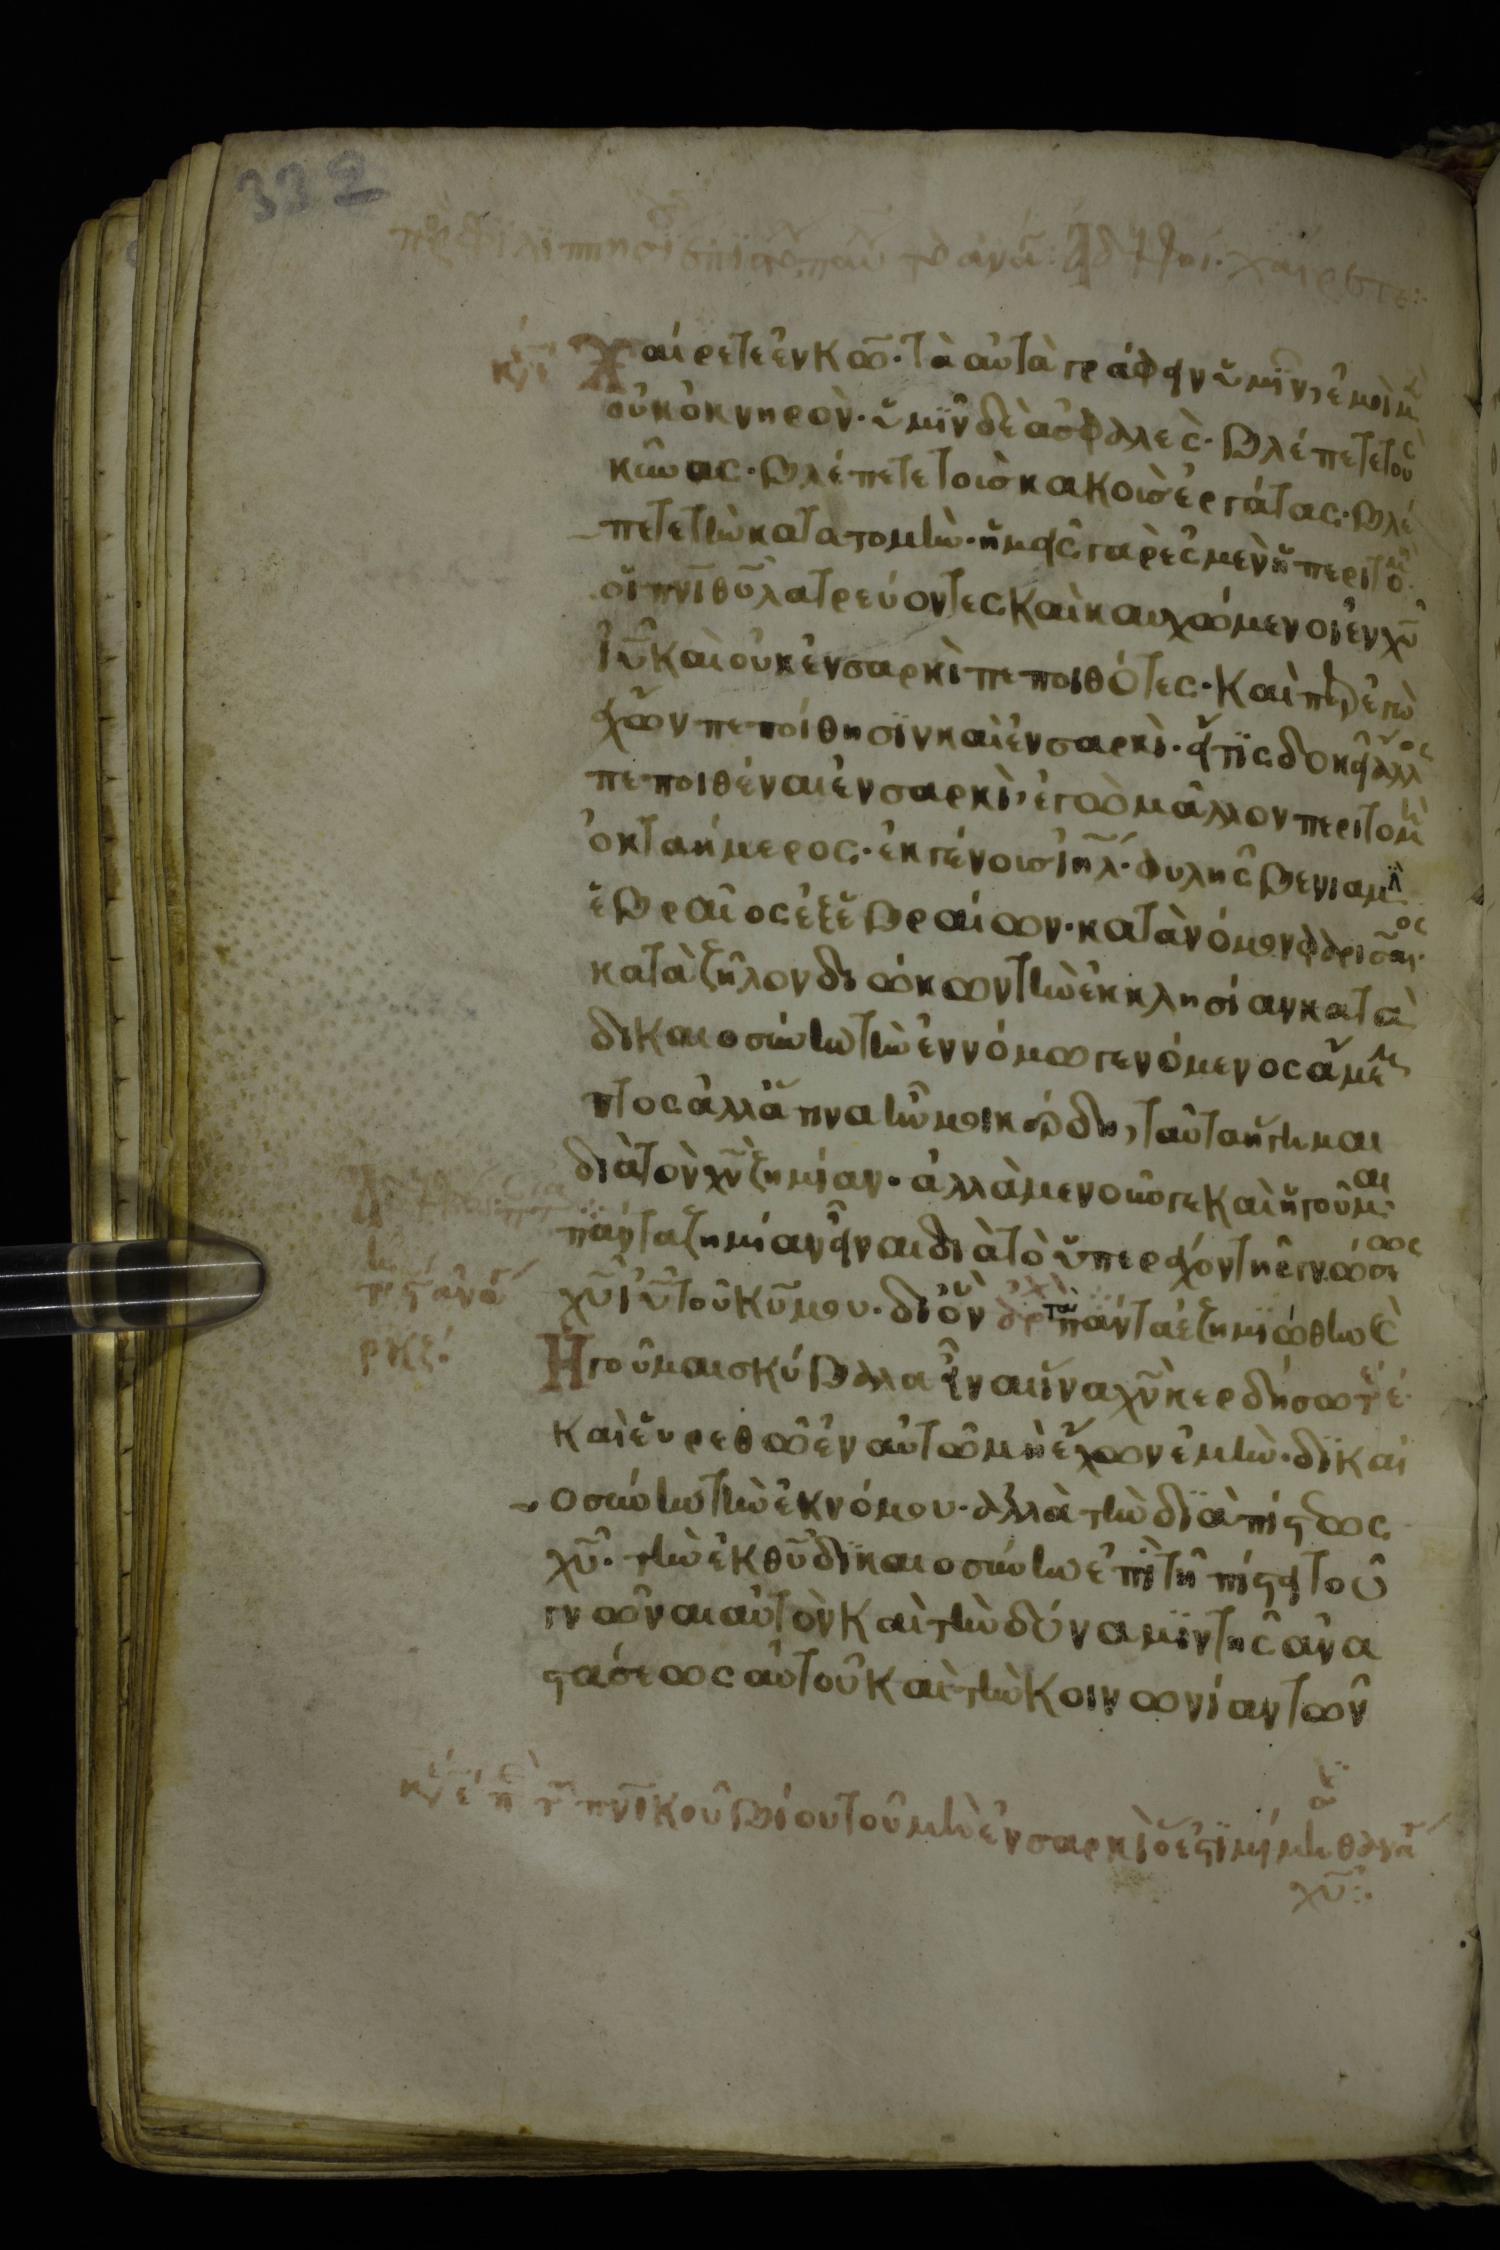 332
Χαίρετε ἐν κω̅· τὰ αὐτὰ γράφειν ὑμῖν, ἐμοὶ μὲν
οὐκ ὀκνηρὸν· ὑμῖν δὲ ἀσφαλὲς· βλέπετε τοὺς
κύνας· βλέπετε τοὶς κακοὶς ἐργάτας· βλέ
πετε τὴν κατατομὴν· ἡμεῖς γὰρ ἐσμὲν ἡ περιτομὴ
οἱ πνι̅ θυ̅ λατρεύοντες καὶ καυχώμενοι ἐν χω̅
ιυ̅ καὶ οὐκ ἐν σαρκὶ πεποιθότες· καὶπερ ἐγὼ
ἔχων πεποίθησιν καὶ ἐν σαρκὶ· εἴ τις δοκεῖ ἄλλος
πεποιθέναι ἐν σαρκὶ, ἐγὼ μᾶλλον περιτομὴ
ὀκταήμερος· ἐκ γένοις ιηλ̅· φυλῆς βενιαμὶν
ἑβραῖος ἐξ ἑβραίων· κατὰ νόμον φαρισαῖος·
κατὰ ζῆλον διώκων τὴν ἐκκλησίαν κατὰ
δικαιοσύνην τὴν ἐν νόμω γενόμενος ἄμεμ
πτος ἀλλ' ἅτινα ἦν μοι κέρδη, ταῦτα ἥγημαι
διὰ τὸν χν̅ ζημίαν· ἀλλὰ μενοῦνγε καὶ ἡγοῦμαι
πάντα ζημίαν εἶναι διὰ τὸ ὑπερέχον τῆς γνώσεως
χυ̅ ιυ̅ τοῦ κυ̅ μου· δι' ὃν τὰ πάντα ἐζημιώθην
Ἡγοῦμαι σκύβαλλα εἶναι ἵνα χν̅ κερδήσω
καὶ εὑρεθῶ ἐν αὐτῶ μὴ ἔχων ἐμὴν· δικαι
οσύνην τὴν ἐκ νόμου· ἀλλὰ τὴν διὰ πίστεως
χυ̅· τὴν ἐκ θυ̅ δικαιοσύνην ἐπὶ τῆ πίστει τοῦ
γνῶναι αὐτὸν καὶ τὴν δύναμιν τῆς ἀνα
στάσεως αὐτοῦ καὶ τὴν κοινωνίαν τῶν